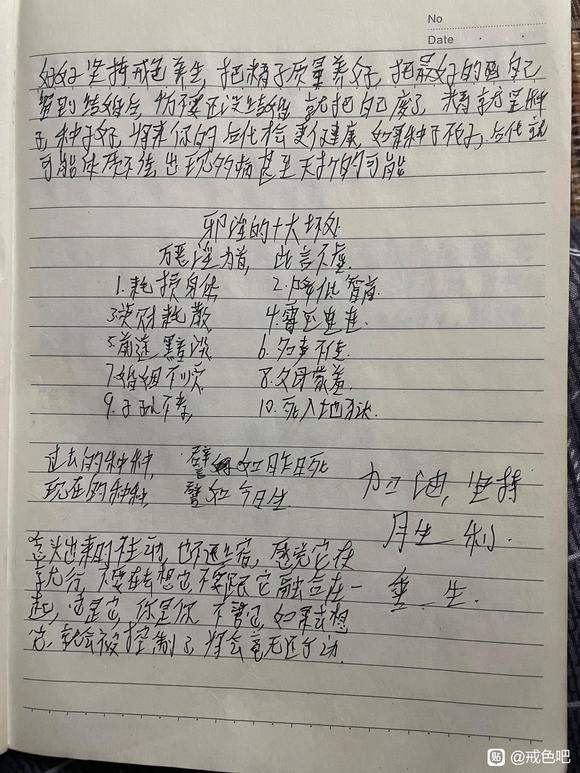 No
Date
好好坚持戒色养生,把精子质量养好,把最好的自己
留到结婚后,你不要还没结婚,就把自己废了,精子是种
子,种子好,将来你的后代检更健康,如果种子不好,后代就
可能体质不佳,出现多病甚至夭折的可能
邪淫的十大坏处
万恶淫为首,此言不虚.
1.耗损身体 2.降低智商.
3.钱财耗散 4.霉运连连.
5.前途黑暗没 6.名声不佳.
7.婚姻不顺 8.父母蒙羞.
9.子孙不孝, 10.死入地狱.
过去的种种, 譬如昨日死
现在的种种, 譬如今日生
加油,坚持
月生 利.
重生.
意头出来的
感觉它在
不要去想它不要跟它融合在一
起,它是它,你是你,不管它,如果去想
它,就会被控制了,将会毫无还手
贴 @戒色吧